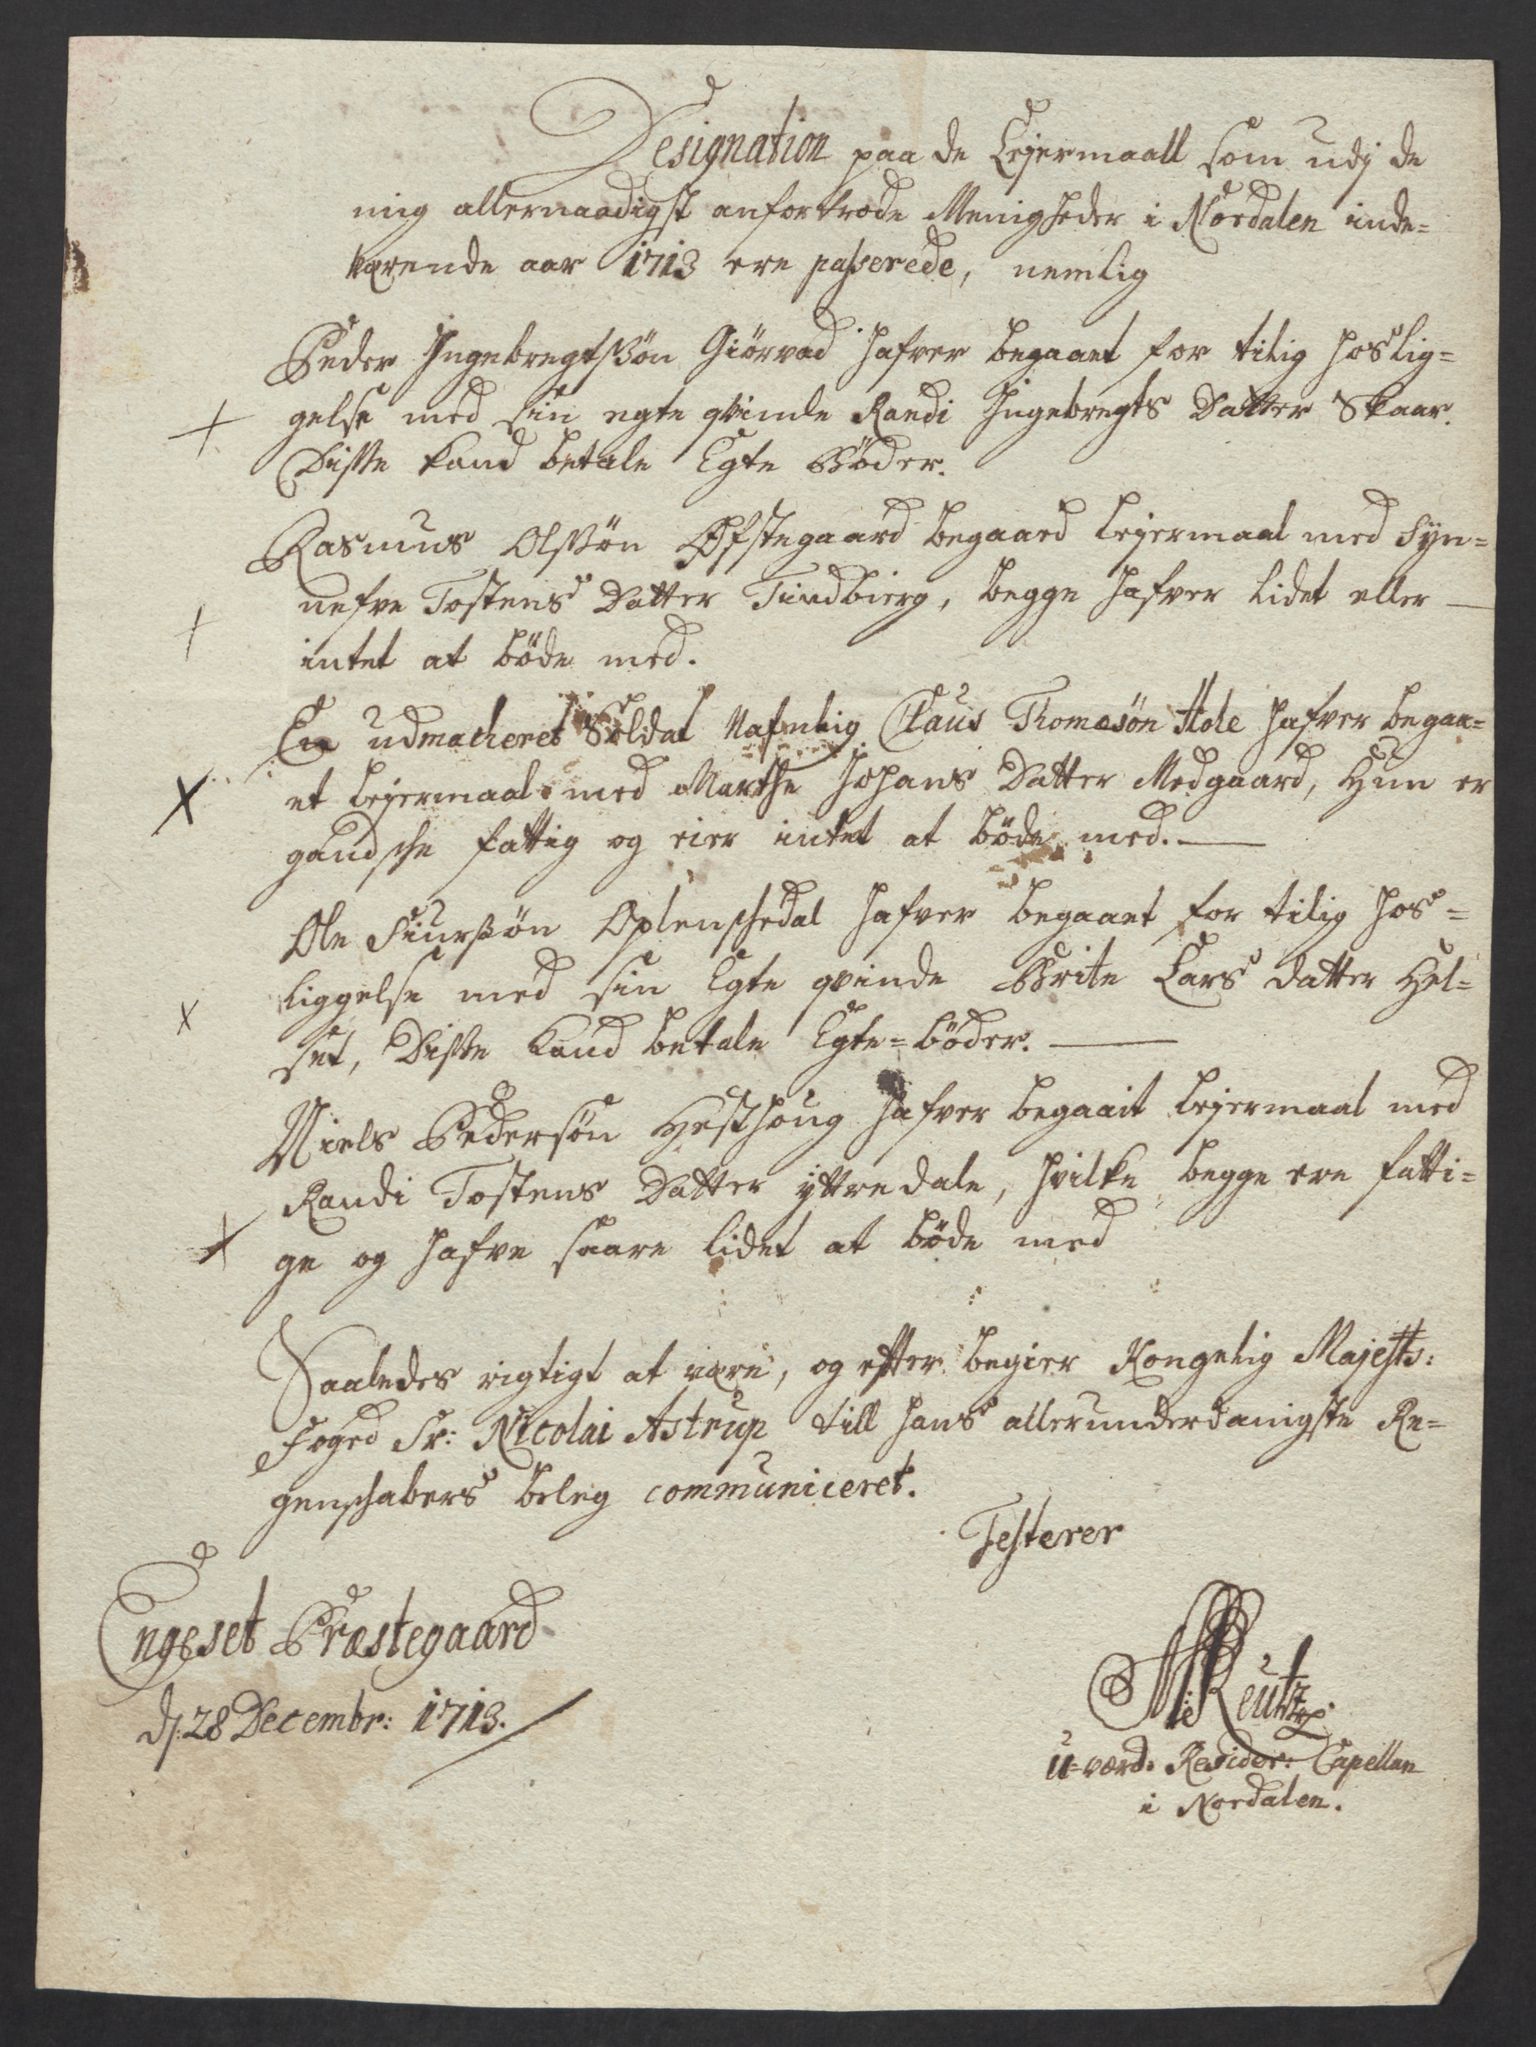 Designation paa de Lejermaall som udj de
mig allernaadigst anfortrode Menigheder i Nordalen inde-
værende aar 1713 ere passerede, nemlig
Peder Ingebregtssön Giörvad hafver begaaet for tilig hoslig-
gelse med sin egte qvinde Randi Ingebregts Datter Skaar.
Disse kand betale Egte Böder.
Rasmus Olssön Öfstegaard begaaed lejermaal med Syn-
nefve Tostens Datter Tindbierg, begge hafver lidet eller
intet at böde med.
En udmacheret Soldat Nafnlig Claus Thomesön Hole hafver begaa-
et lejermaal med Marthe Johans Datter Medgaard, Hun er
gandsche fattig og eier intet at böde med.
Ole Siurssön Oplenschedal hafver begaaet for tilig hos-
liggelse med sin Egte qvinde Brite Lars datter Hel-
set, Disse kand betale Egte-böder.
Niels Pedersön Hesthoug hafver begaait lejermaal med
Randi Tostens Datter yttredale, hvilke begge ere fatti-
ge og hafve saare lidet at böde med
Saaledes rigtigt at være, og efter begier Kongelig Majestts:
Foged Sr: Nicolai Astrup till hans allerunderdanigste Re-
genschabers beleg communiceret.
Testerer
Engeset Præstegaard
d. 28 Decembr: 1713.
Reutz
U-værd. Resider: Capellan
i Nordalen.